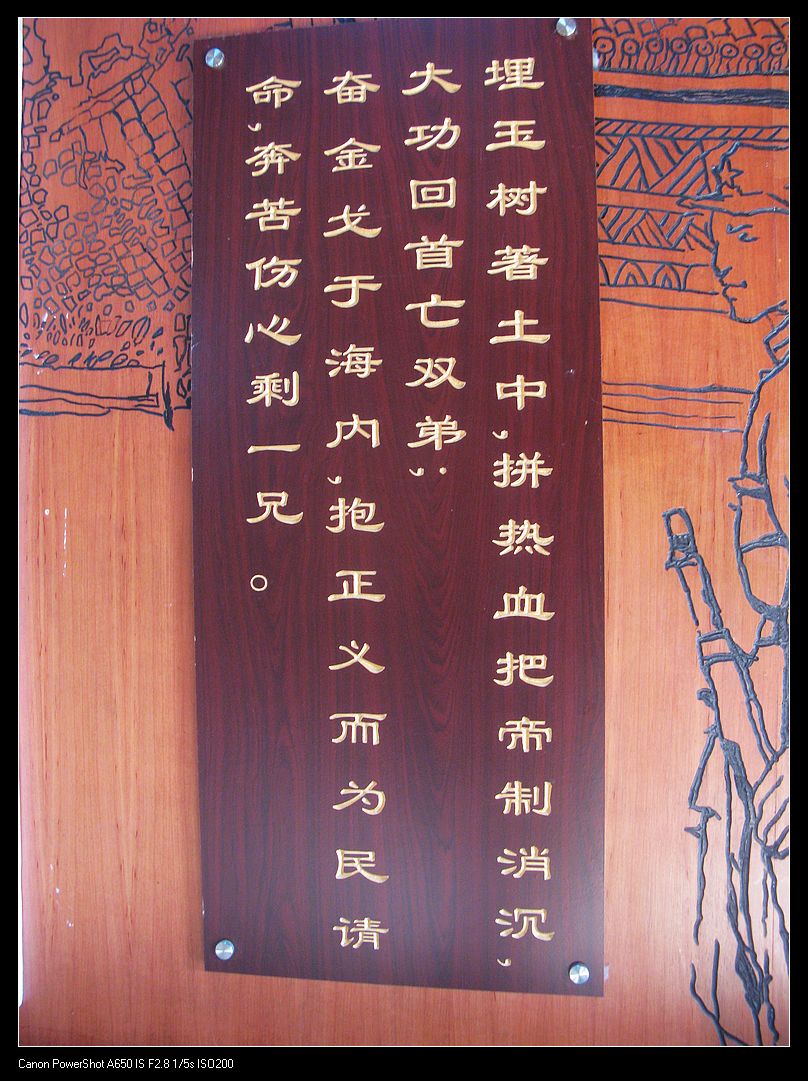 埋玉树著土中,拼热血把帝制消沉,
大功回首亡双弟;
奋金戈于海内,抱正义而为民请
命,奔苦伤心剩一兄。
Canon PowerShot A650 IS F2.8 1/5s ISO200